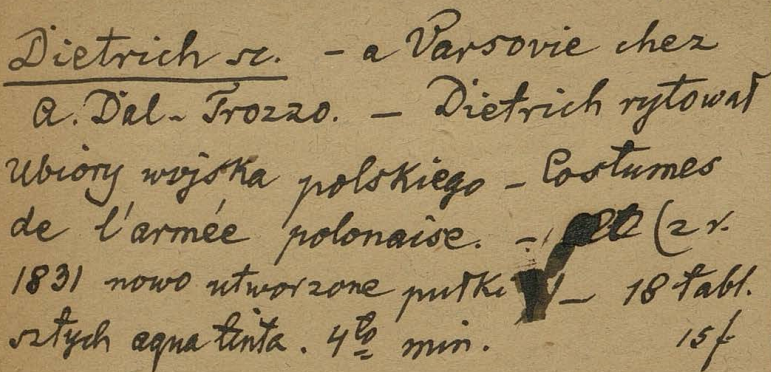 Dietrich sc. – a Varsovie chez
A. Dal-Trozzo. – Dietrich rytował
Ubiory wojska polskiego – Costumes
de l'armée polonaise. – (z r.
1831 nowo utworzone pułki – 18 tabl.
sztych aqua tinta. 4to min. 15f